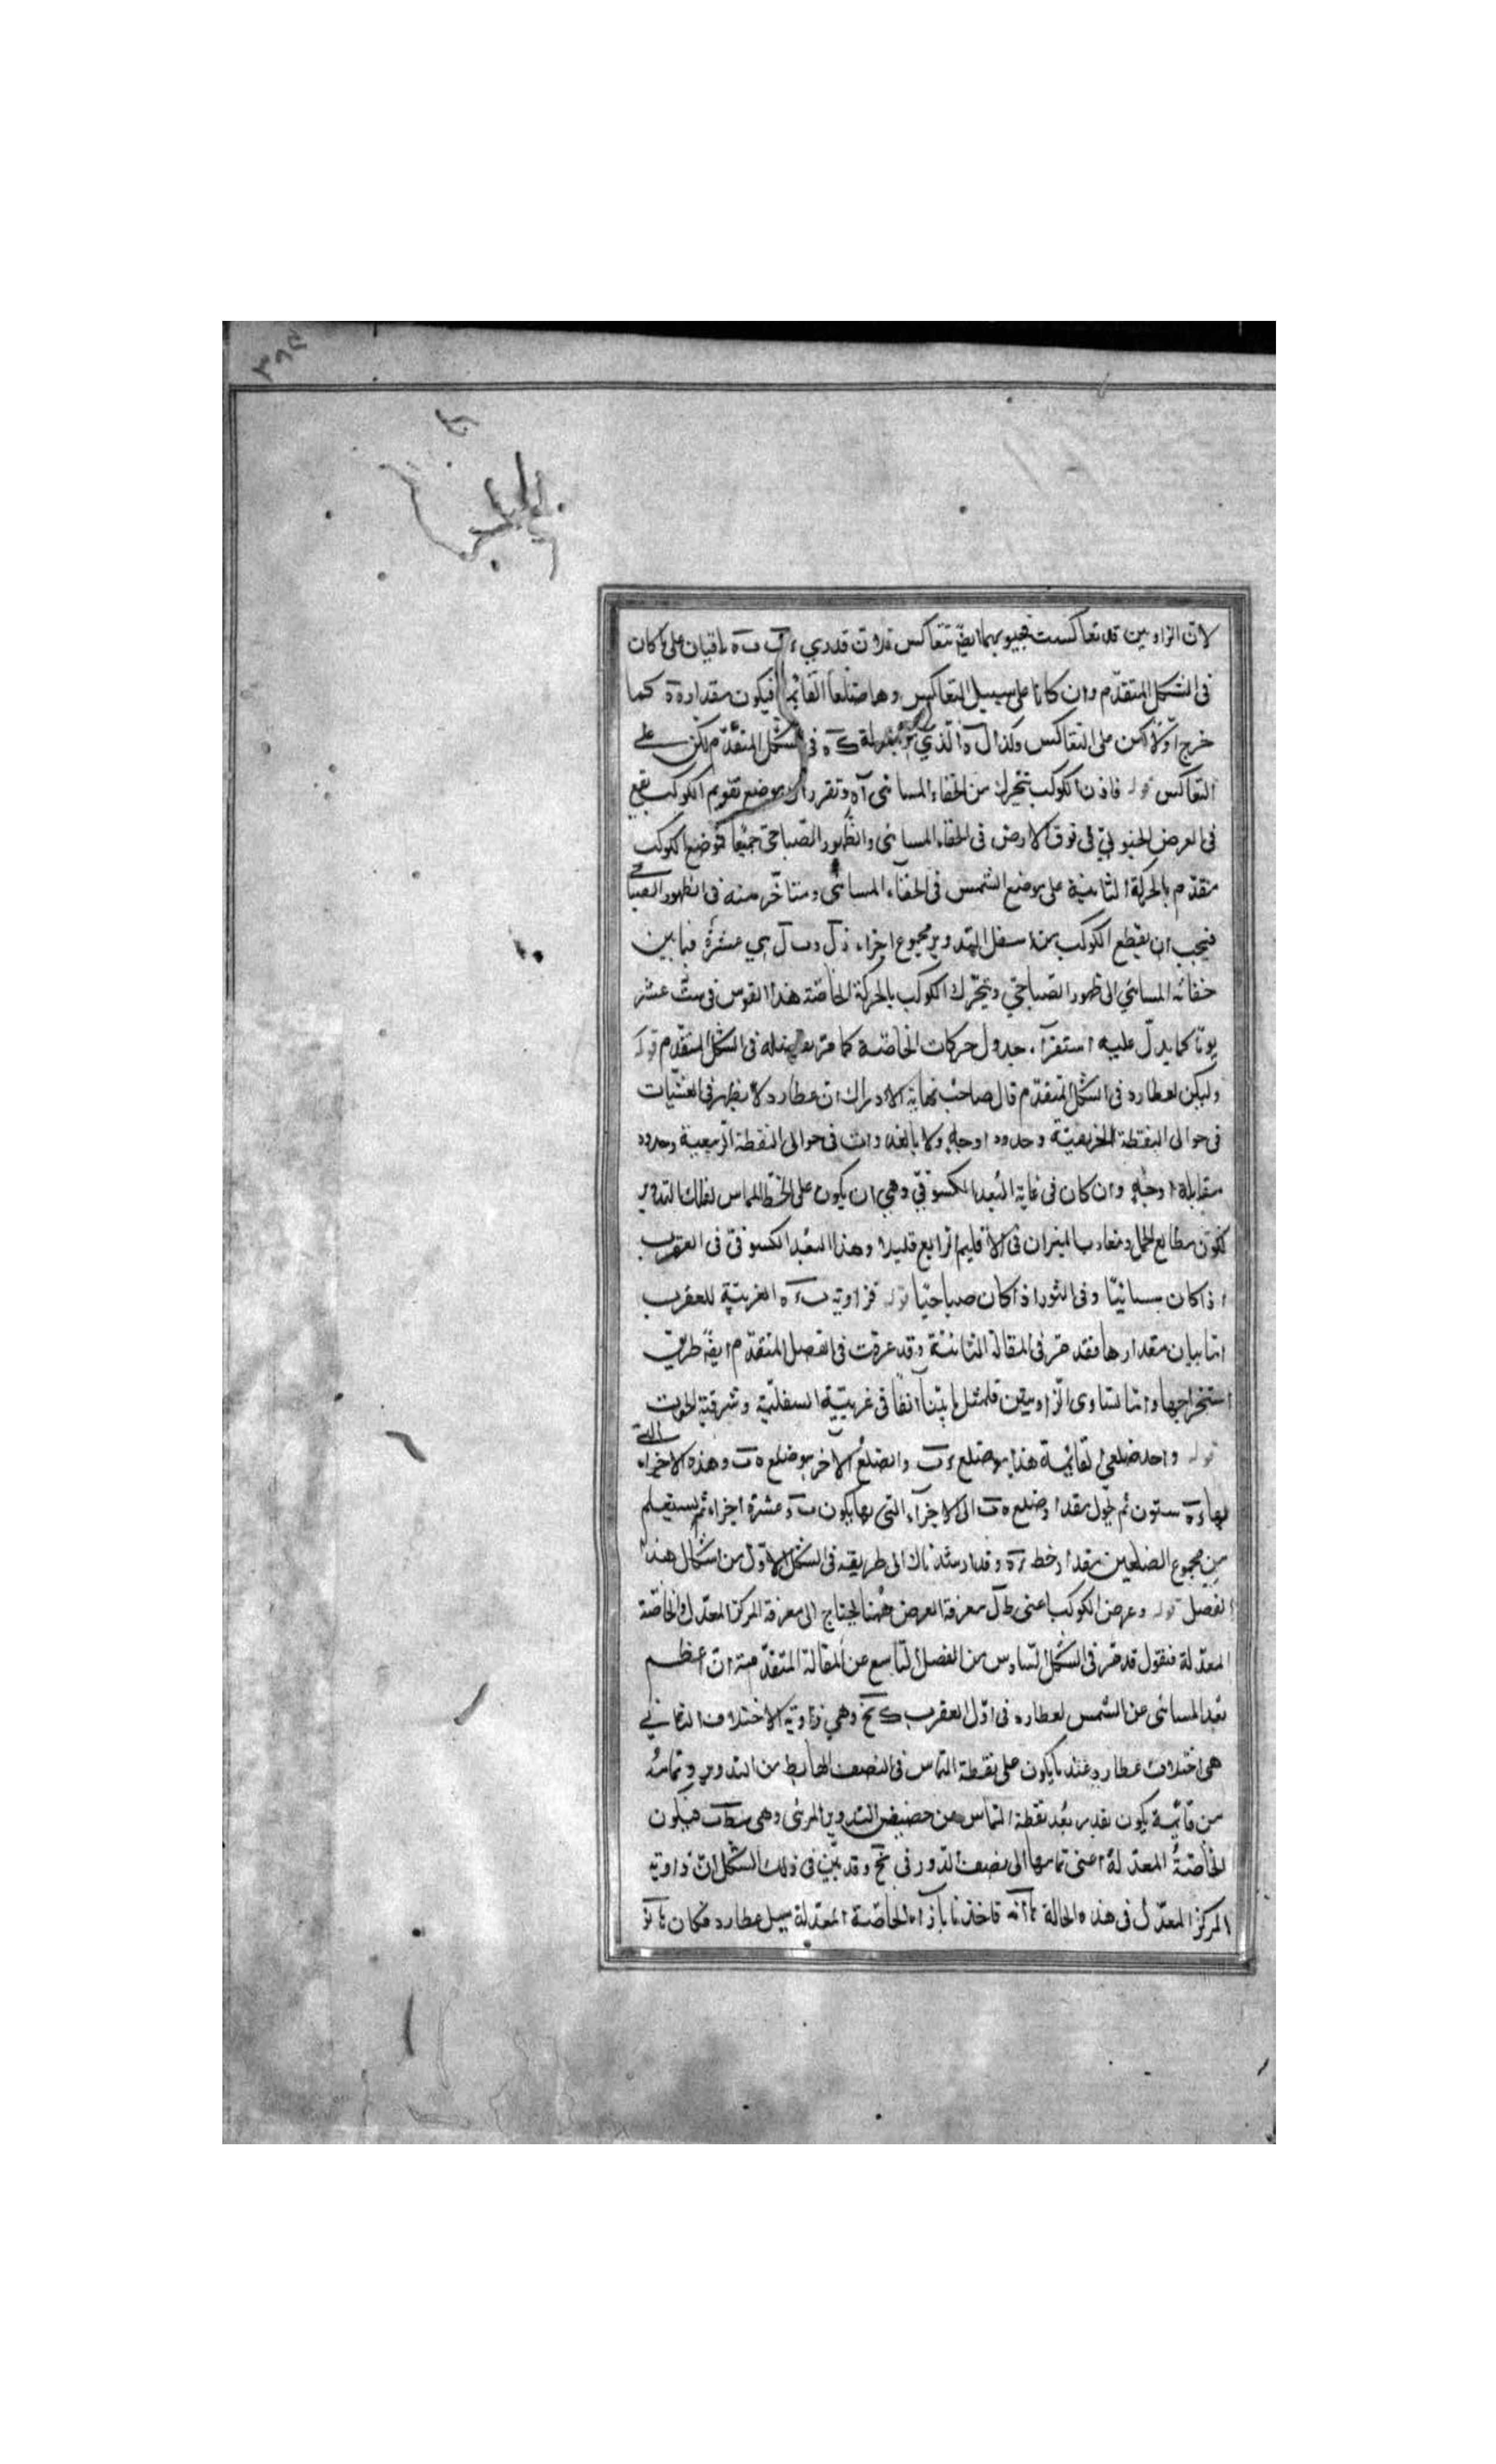 لان الزاويتين قد تعاكست فجيوبهما ايضا تتعاكس فلان قدري ءب ب ه باقيان على ما كان
فى الشكل المتقدّم وان كانا على سبيل التعاكس وهما ضلعا القائمة فيكون مقدار ءه كما
خرج اوّلا لكن على التعاكس وكذا ل ه الذي هو بمنزلة ك ه فى الشكل المتقدّم لكن على
التعاكس قوله فاذن الكوكب يتحرك من الخفاء المسائى اه وتقرر ان موضع تقويم الكوكب يقع
فى العرض الجنوبيّ فى فوق الارض فى الخفاء المسائى والظهور الصباحىّ جميعًا فموضع الكوكب
متقدّم بالحركة الثانية على موضع الشمس فى الخفاء المسائى ومتاخّر منه فى الظهور الصباحى
فيجب ان يقطع الكوكب من اسفل التدوير مجموع اجزاء ز ل و ب ل هي عشرة فيما بين
خفائه المسائي الى ظهور الصباحي ويتحرّك الكوكب بالحركة الخاصّة هذا القوس فى ستّ عشر
يومًا كما يدلّ عليه استقرآء جدول حركات الخاصّة كما مرّ مثله فى الشكل المتقدّم قوله
وليكن لعطارد فى الشكل المتقدّم قال صاحب نهاية الادراك ان عطارد لا يظهر فى العشيّات
فى حوالى النقطة الخريفيّة وحدود اوجه ولا بالغدوات فى حوالى النقطة الربيعية وحدود
مقابلة اوجه وان كان فى غاية البُعد الكسوفيّ وهي ان يكون على الخط المماس لفلك التدوير
لكون مطالع الحمل ومغارب الميزان فى الاقليم الرابع قليلا وهذا البُعد الكسوفىّ فى العقرب
اذ كان مسائيّا وفى الثور اذا كان صباحيّا قوله فزاوية ب ء ه الغربيّة للعقرب
امّا بيان مقدارها فقد مرّ فى المقالة الثانية وقد عرفت فى الفصل المتقدّم ايضًا طريق
استخراجها وامّا تساوى الزاويتين فلمثل ما بيّنا آنفًا فى غربيّة السفليّة وشرقية الحوت
قوله واحد ضلعي القائمة هذا هو ضلع ء ب والضلع الاخر هو ضلع ه ب وهذه الاجزاء التى
بها ء ه ستون ثم يحوّل مقدار ضلع ه ب الى الاجزآء التى بها يكون ب ء عشرة اجزاء ثم يستعلم
من مجموع الضلعين مقدار خط ء ه وقد ارشدناك الى طريقه فى الشكل الاوّل من اشكال هذا
الفصل قوله وعرض الكوكب اعنى ط ل معرفة العرض هٰهنا يحتاج الى معرفة المركز المعدّل والخاصّة
المعدّلة فنقول قد مرّ فى الشكل السادس من الفصل التاسع من المقالة المتقدّمة ان اعظم
بعد المسائى عن الشمس لعطارد فى اوّل العقرب ك نح وهي زاوية الاختلاف الثاني
هى اختلاف عطارد عند ما يكون على نقطة التماس فى النصف الهابط من التدوير وتمامه
من قائمة يكون بقدر بُعد نقطة التماس من حضيض التدوير المرئى وهى سط ب فيكون
الخاصّةُ المعدّلة اعنى تمامها الى نصف الدور قى نح وقد تبيّن فى ذلك الشكل انّ زاوية
المركز المعدّل فى هذه الحالة فاخذنا بازاء الخاصّة المعدّلة ميل عطارد فكان